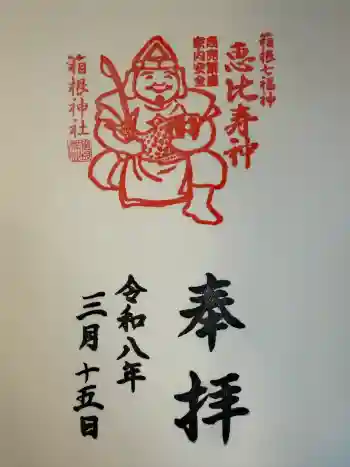 箱根七福神
恵比寿神
商売繁盛
家内安全
箱根神社
奉拝
令和八年
三月十五日